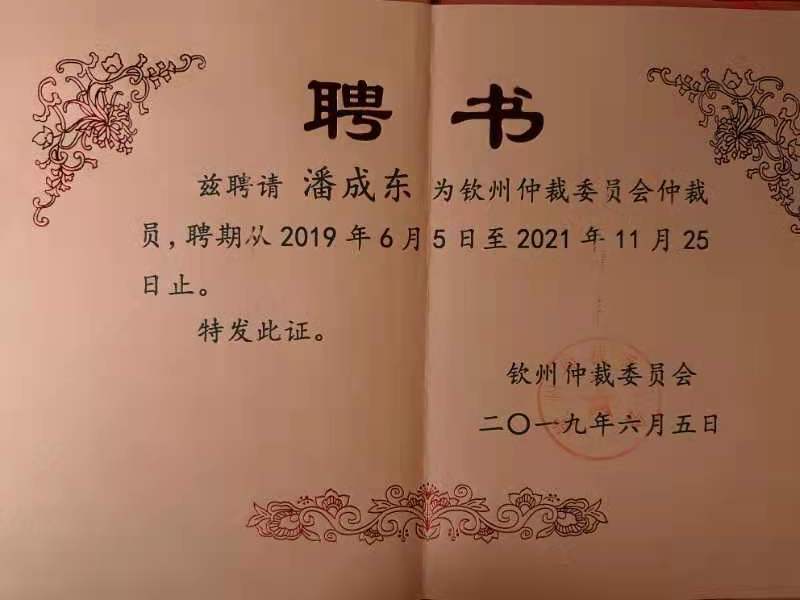 聘书
兹聘请 潘成东 为钦州仲裁委员会仲裁
员，聘期从 2019 年 6 月 5 日至 2021 年 11 月 25
日止。
特发此证。
钦州仲裁委员会
二〇一九年六月五日